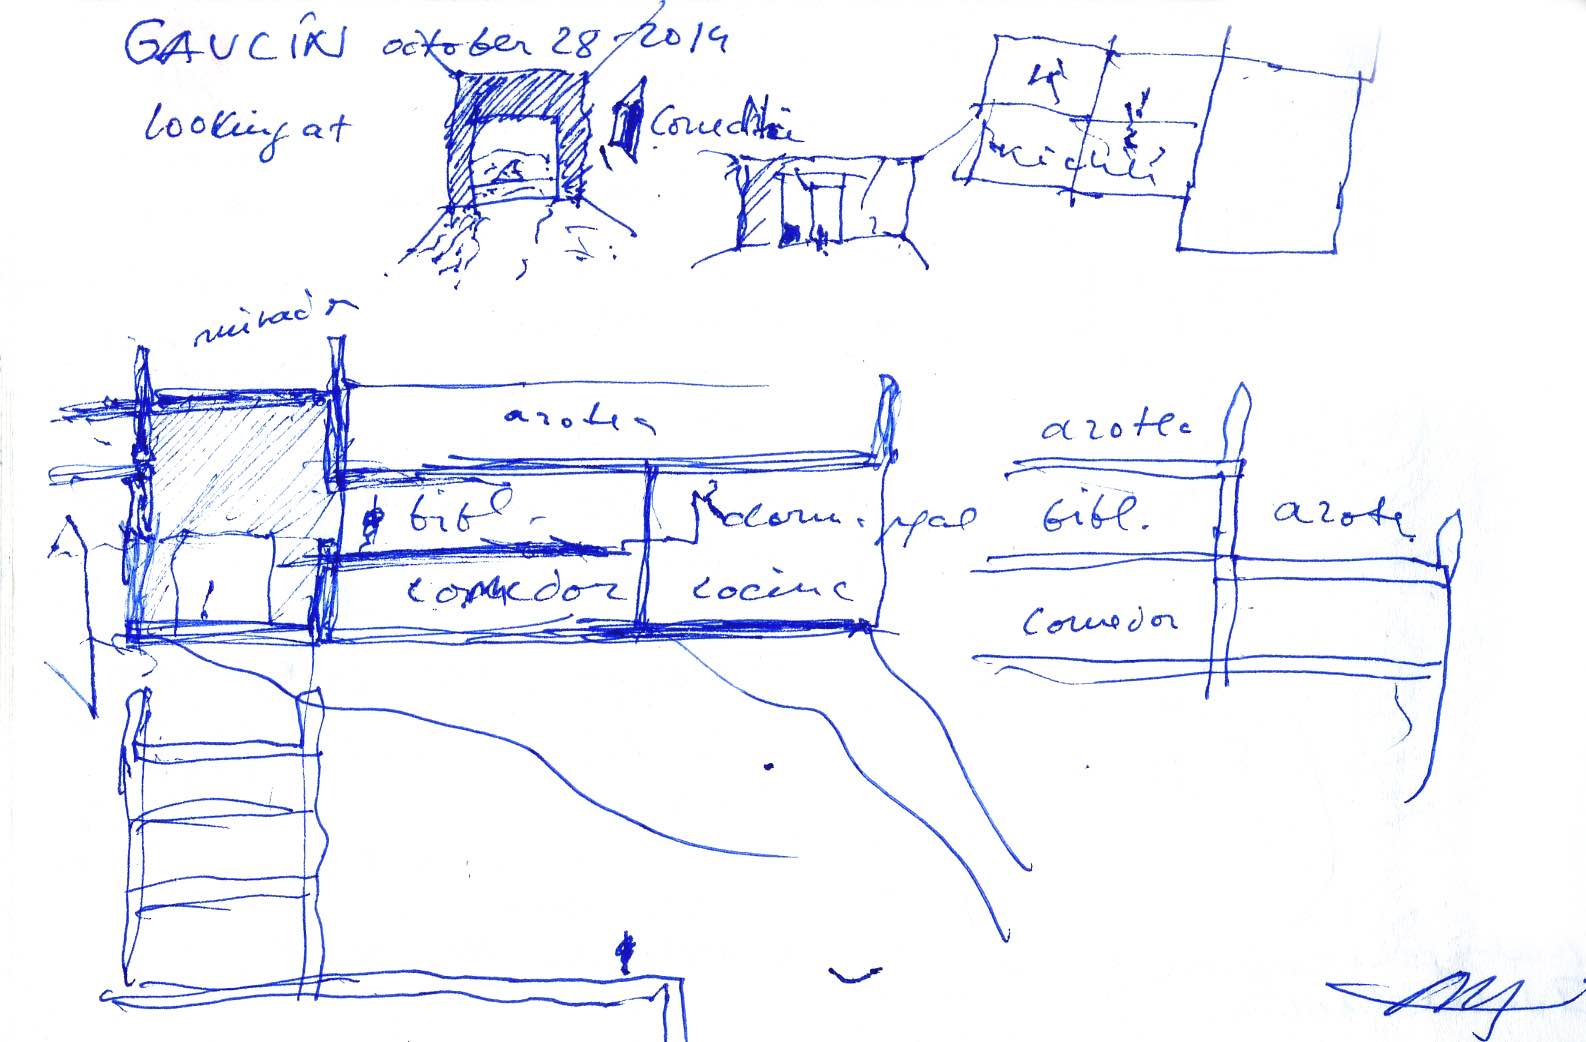 GAUCÍN october 28-2019
looking at
mirador
azotea
bibl.
dorm. ppal
comedor
cocina
azotea
bibl.
azotea
comedor